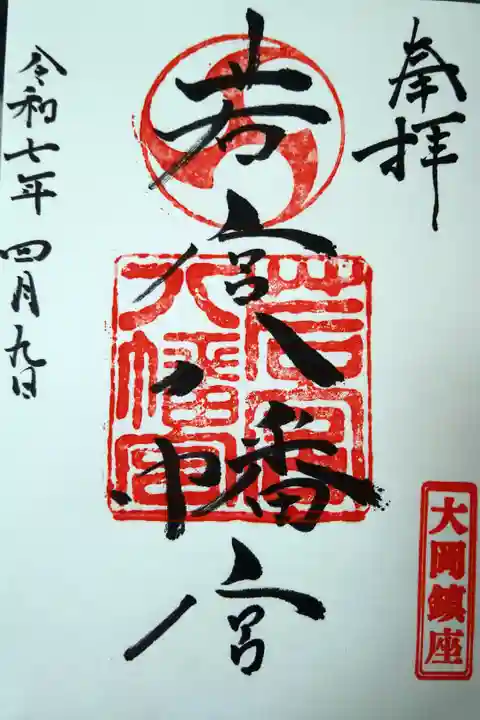 奉拝
若宮八幡宮
令和七年四月九日
若宮八幡宮
大岡鎮座